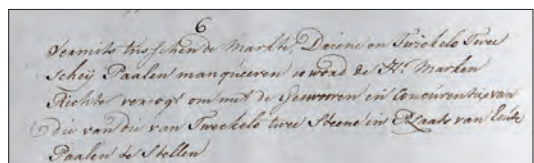 6
Vermits tusschen de Markte, Deiene en Twickelo Twee
Scheij Paalen manqueeren so word de Hr. Marken
Richter versogt om met de Geuuren in Concurentie van
die van die van Tweckelo twee Steene in Plaats van
Paalen te Stellen